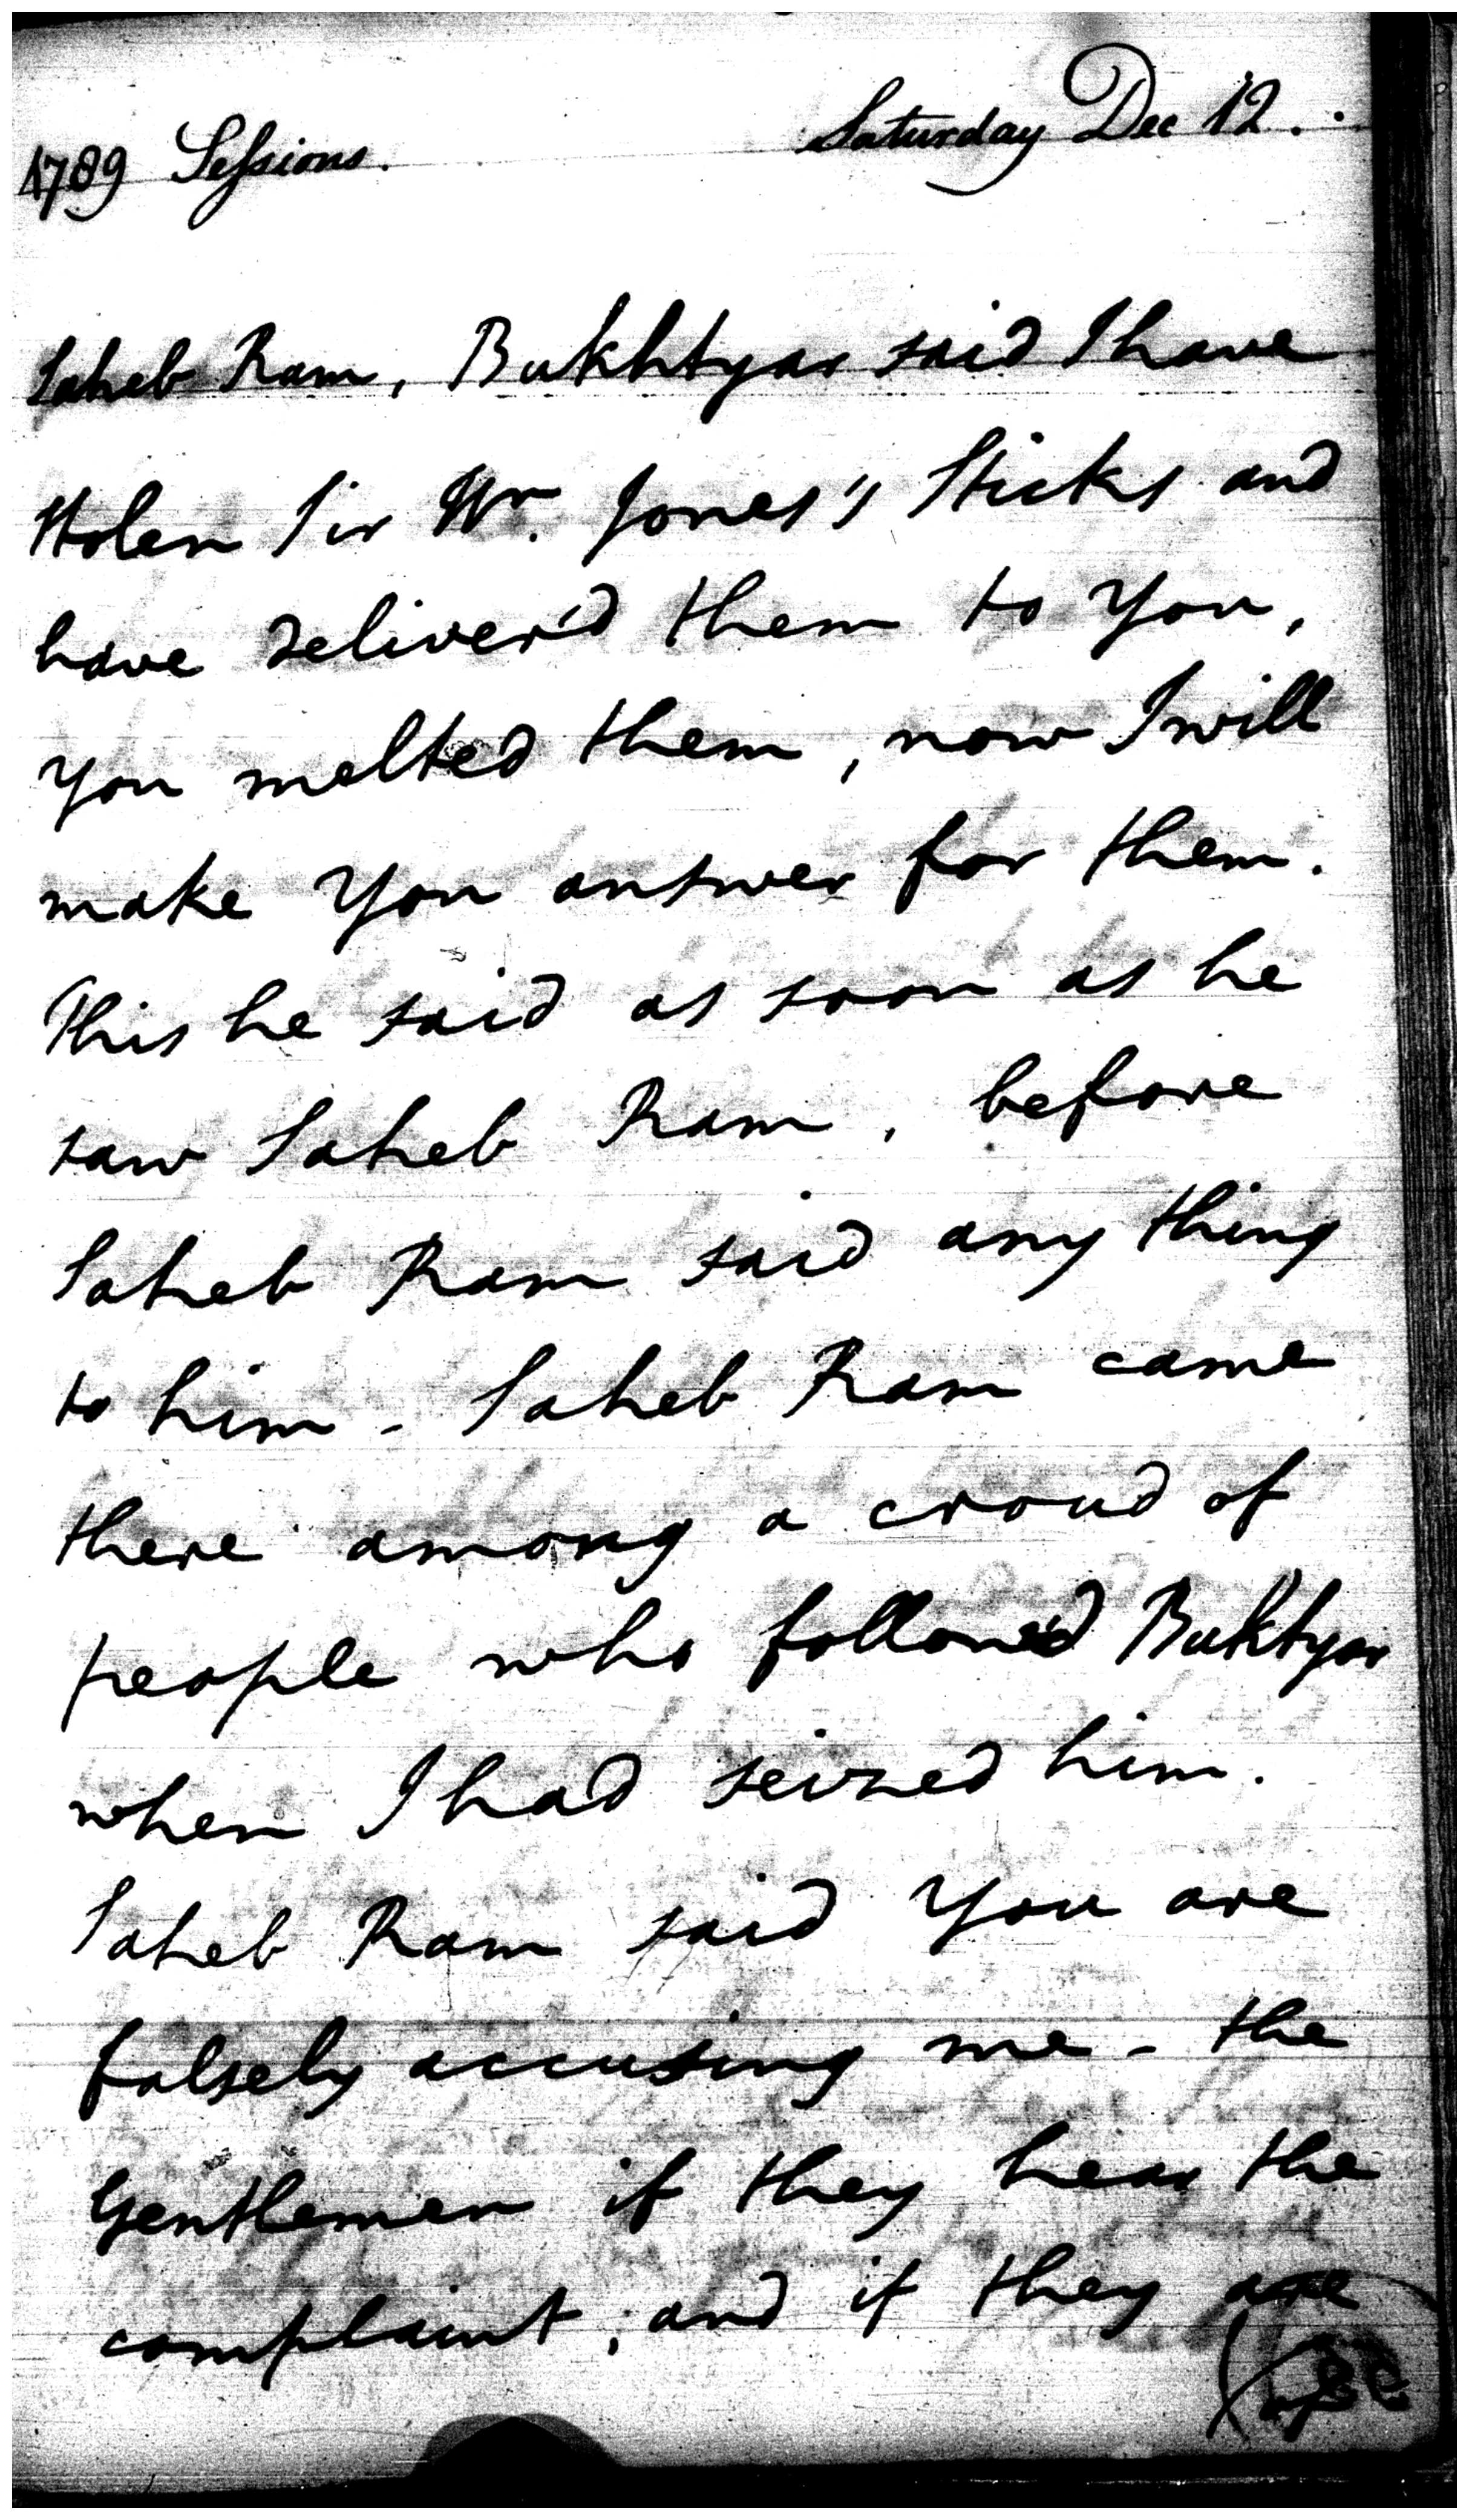 1789 Sessions. Saturday Dec 12.
Saheb Ram, Bukhtyar said I have
stolen Sir Wm. Jones's Sticks and
have deliver'd them to You,
You melted them, now I will
make You answer for them.
This he said as soon as he
saw Saheb Ram, before
Saheb Ram said any thing
to him - Saheb Ram came
there among a croud of
people who followed Buktyar
when I had seized him.
Saheb Ram said You are
falsely accusing me - the
Gentlemen if they hear the
complaint, and if they are
(of